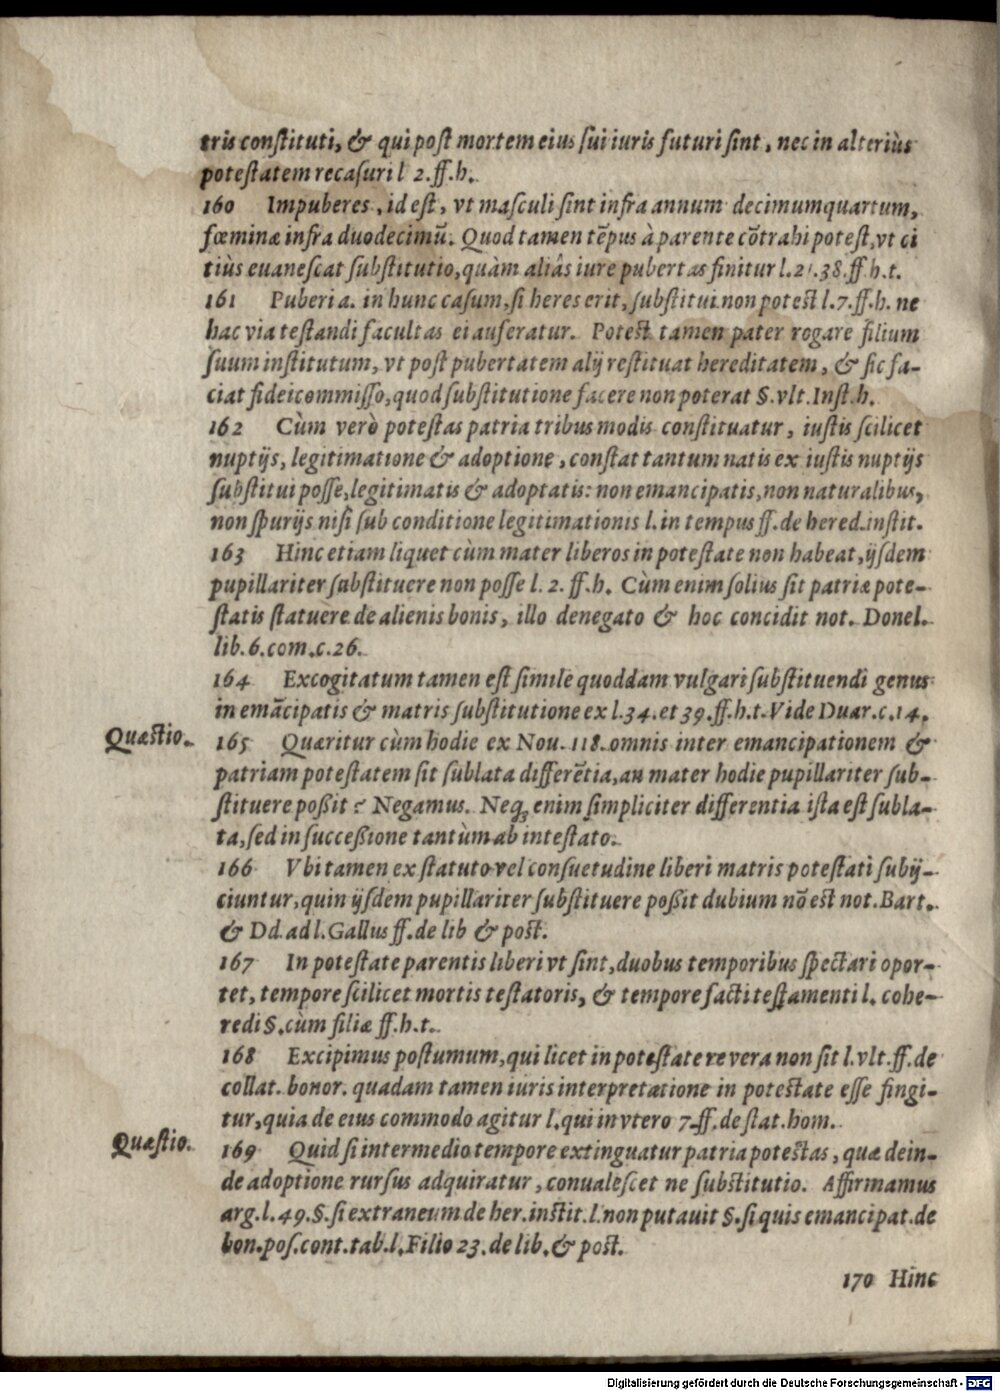 tris constituti, & qui post mortem eius sui iuris futuri sint, nec in alteriùs
potestatem recasuri l 2. ff. h.
160 Impuberes, id est, vt masculi sint infra annum decimumquartum,
fœminæ infra duodecimū. Quod tamen tẽpus à parente cõtrahi potest, vt ci
tiùs euanescat substitutio, quàm aliâs iure pubertas finitur l. 21. 38. ff. h. t.
161 Puberi a. in hunc casum, si heres erit, substitui non potest l. 7. ff. h. ne
hac via testandi facultas ei auferatur. Potest tamen pater rogare filium
suum institutum, vt post pubertatem alij restituat hereditatem, & sic fa-
ciat fideicommisso, quod substitutione facere non poterat §. vlt. Inst. h.
162 Cùm verò potestas patria tribus modis constituatur, iustis scilicet
nuptijs, legitimatione & adoptione, constat tantum natis ex iustis nuptijs
substitui posse, legitimatis & adoptatis: non emancipatis, non naturalibus,
non spurijs nisi sub conditione legitimationis l. in tempus ff. de hered. instit.
163 Hinc etiam liquet cùm mater liberos in potestate non habeat, ijsdem
pupillariter substituere non posse l. 2. ff. h. Cùm enim solius sit patriæ pote-
statis statuere de alienis bonis, illo denegato & hoc concidit not. Donel.
lib. 6. com. c. 26.
164 Excogitatum tamen est simile quoddam vulgari substituendi genus
in emãcipatis & matris substitutione ex l. 34. et 39. ff. h. t. Vide Duar. c. 14.
Quæstio. 165 Quæritur cùm hodie ex Nou. 118. omnis inter emancipationem &
patriam potestatem sit sublata differẽtia, an mater hodie pupillariter sub-
stituere poßit? Negamus. Neq; enim simpliciter differentia ista est subla-
ta, sed in succeßione tantùm ab intestato.
166 Vbi tamen ex statuto vel consuetudine liberi matris potestati subij-
ciuntur, quin ijsdem pupillariter substituere poßit dubium nõ est not. Bart.
& Dd. ad l. Gallus ff. de lib & post.
167 In potestate parentis liberi vt sint, duobus temporibus spectari opor-
tet, tempore scilicet mortis testatoris, & tempore facti testamenti l. cohe-
redi §. cùm filiæ ff. h. t.
168 Excipimus postumum, qui licet in potestate re vera non sit l. vlt. ff. de
collat. bonor. quadam tamen iuris interpretatione in potestate esse fingi-
tur, quia de eius commodo agitur l. qui in vtero 7. ff. de stat. hom.
Quæstio. 169 Quid si intermedio tempore extinguatur patria potestas, quæ dein-
de adoptione rursus adquiratur, conualescet ne substitutio. Affirmamus
arg. l. 49. §. si extraneum de her. instit. l. non putauit §. si quis emancipat. de
bon. pos. cont. tab. l. Filio 23. de lib. & post.
170 Hinc
Digitalisierung gefördert durch die Deutsche Forschungsgemeinschaft - DFG